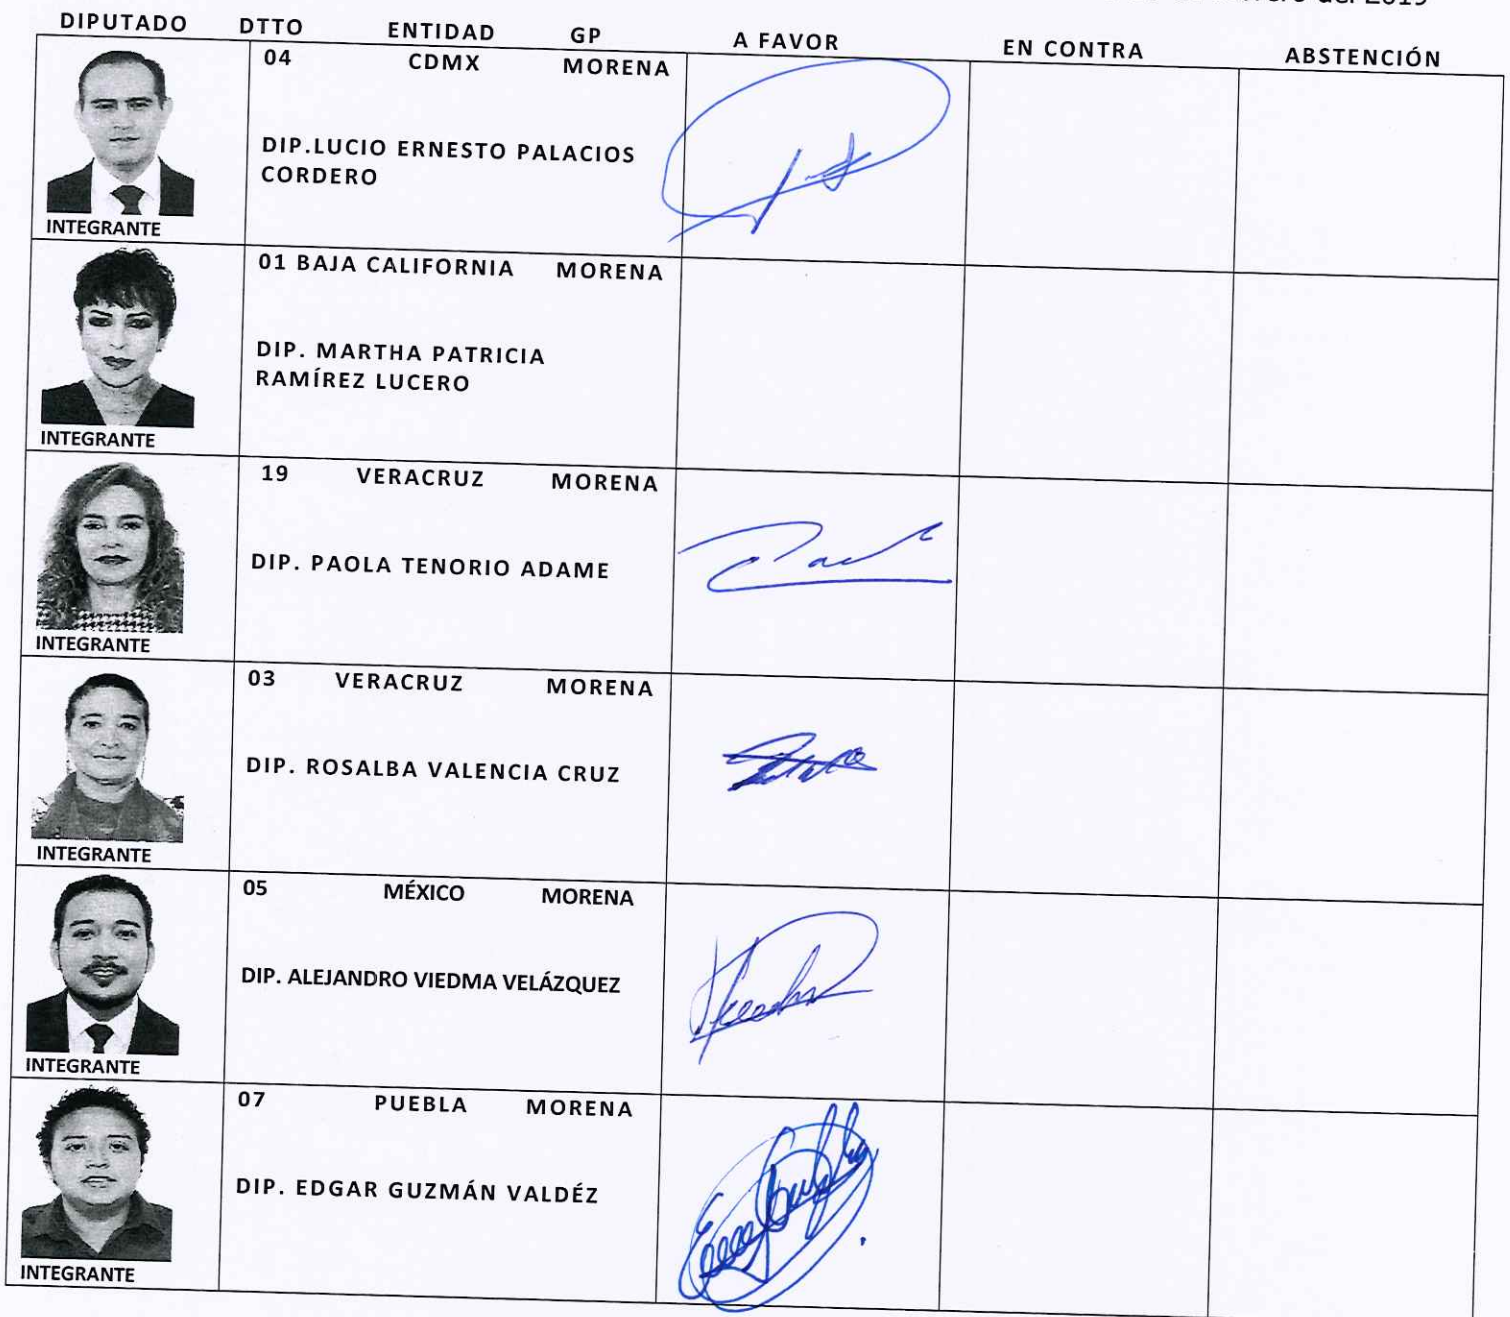 del 2019
DIPUTADO DTTO ENTIDAD GP A FAVOR EN CONTRA ABSTENCIÓN
04 CDMX MORENA
DIP.LUCIO ERNESTO PALACIOS
CORDERO
INTEGRANTE
01 BAJA CALIFORNIA MORENA
DIP. MARTHA PATRICIA
RAMÍREZ LUCERO
INTEGRANTE
19 VERACRUZ MORENA
DIP. PAOLA TENORIO ADAME
INTEGRANTE
03 VERACRUZ MORENA
DIP. ROSALBA VALENCIA CRUZ
INTEGRANTE
05 MÉXICO MORENA
DIP. ALEJANDRO VIEDMA VELÁZQUEZ
INTEGRANTE
07 PUEBLA MORENA
DIP. EDGAR GUZMÁN VALDÉZ
INTEGRANTE